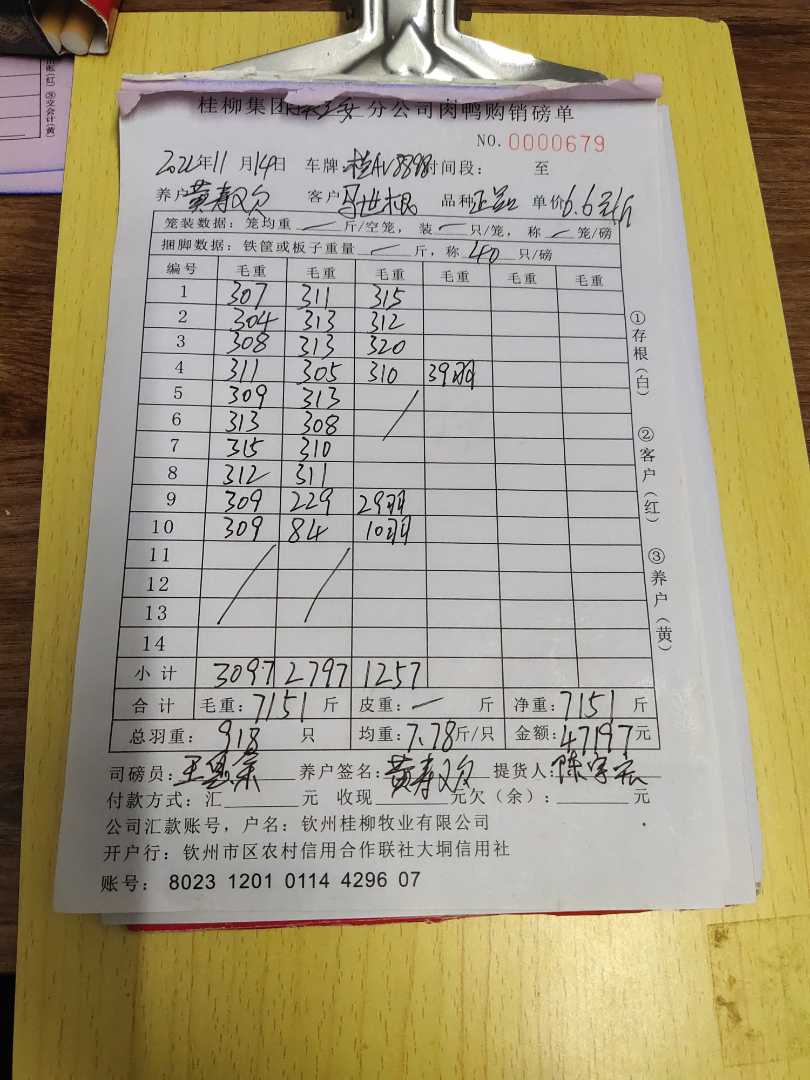 桂柳集团分公司肉鸭购销磅单
NO. 0000679
2021年11月14日 车牌:桂AV8898时间段: 至
养户黄寿 客户马世根 品种正品 单价6.6元/斤
笼装数据: 笼均重 — 斤/空笼, 装 — 只/笼, 称 — 笼/磅
捆脚数据: 铁筐或板子重量 — 斤, 称 40 只/磅
编号 毛重 毛重 毛重 毛重 毛重 毛重
1 307 311 315
2 304 313 312
3 308 313 320
4 311 305 310 39羽
5 309 313
6 313 308
7 315 310
8 312 311
9 309 229 29羽
10 309 84 10羽
11
12
13
14
小计 3097 2797 1257
合计 毛重: 7151 斤 皮重: — 斤 净重: 7151 斤
总羽重: 918 只 均重: 7.78斤/只 金额: 47197元
司磅员: 王 养户签名: 黄寿 提货人: 陈
付款方式: 汇 元 收现 元欠(余): 元
公司汇款账号, 户名: 钦州桂柳牧业有限公司
开户行: 钦州市区农村信用合作联社大垌信用社
账号: 8023 1201 0114 4296 07
①存根(白)
②客户(红)
③养户(黄)
(红) ③交会计(黄)